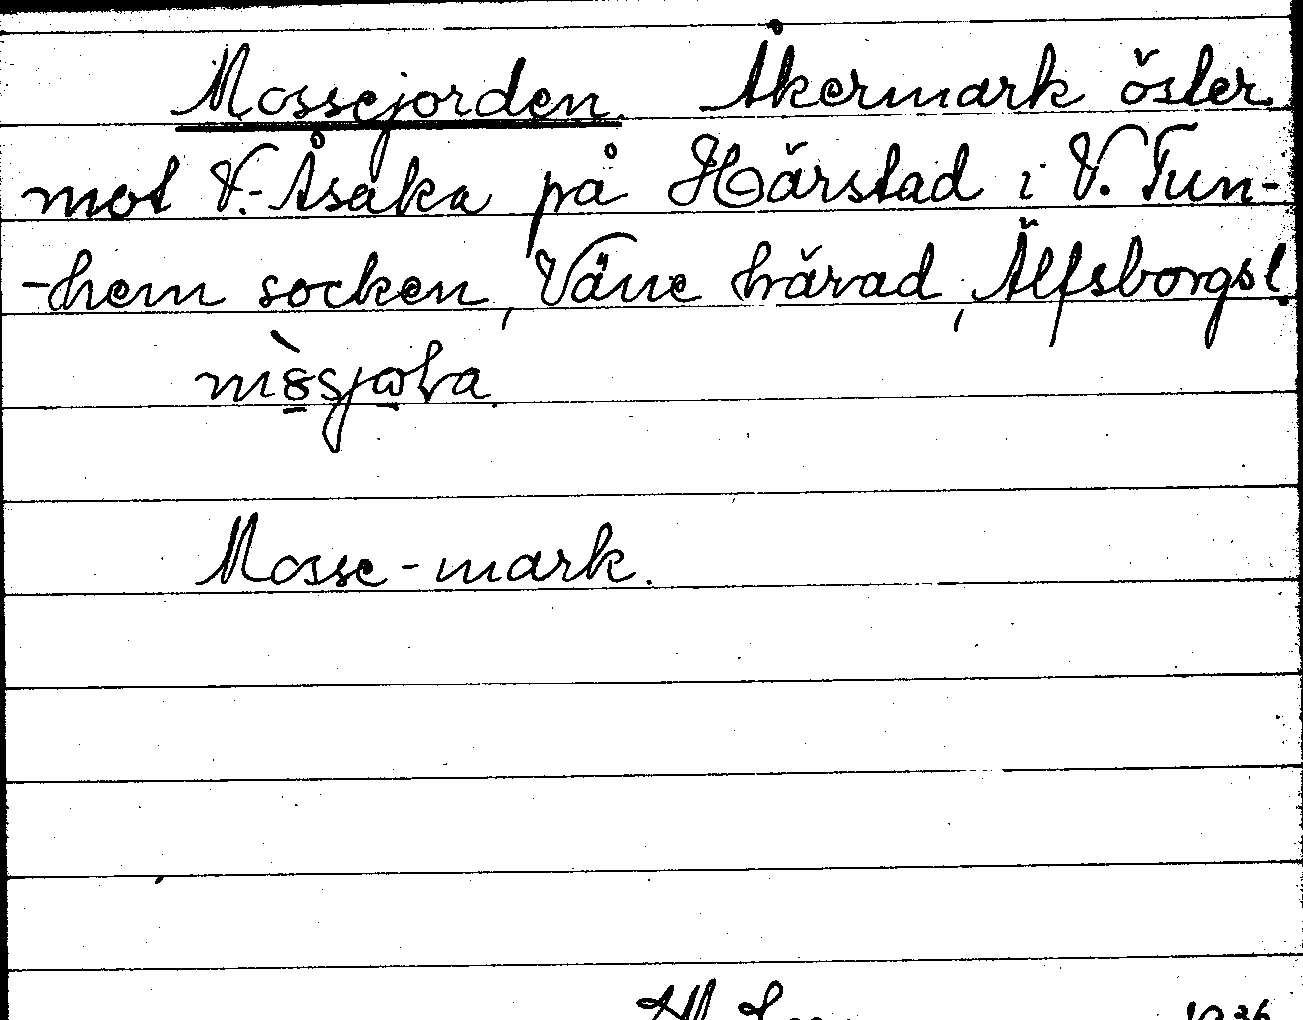 Mossejorden. Åkermark öster
mot V.-Åsaka på Härstad i V. Tun-
-hem socken, Väne härad, Älfsborgsl.
Mosse-mark.